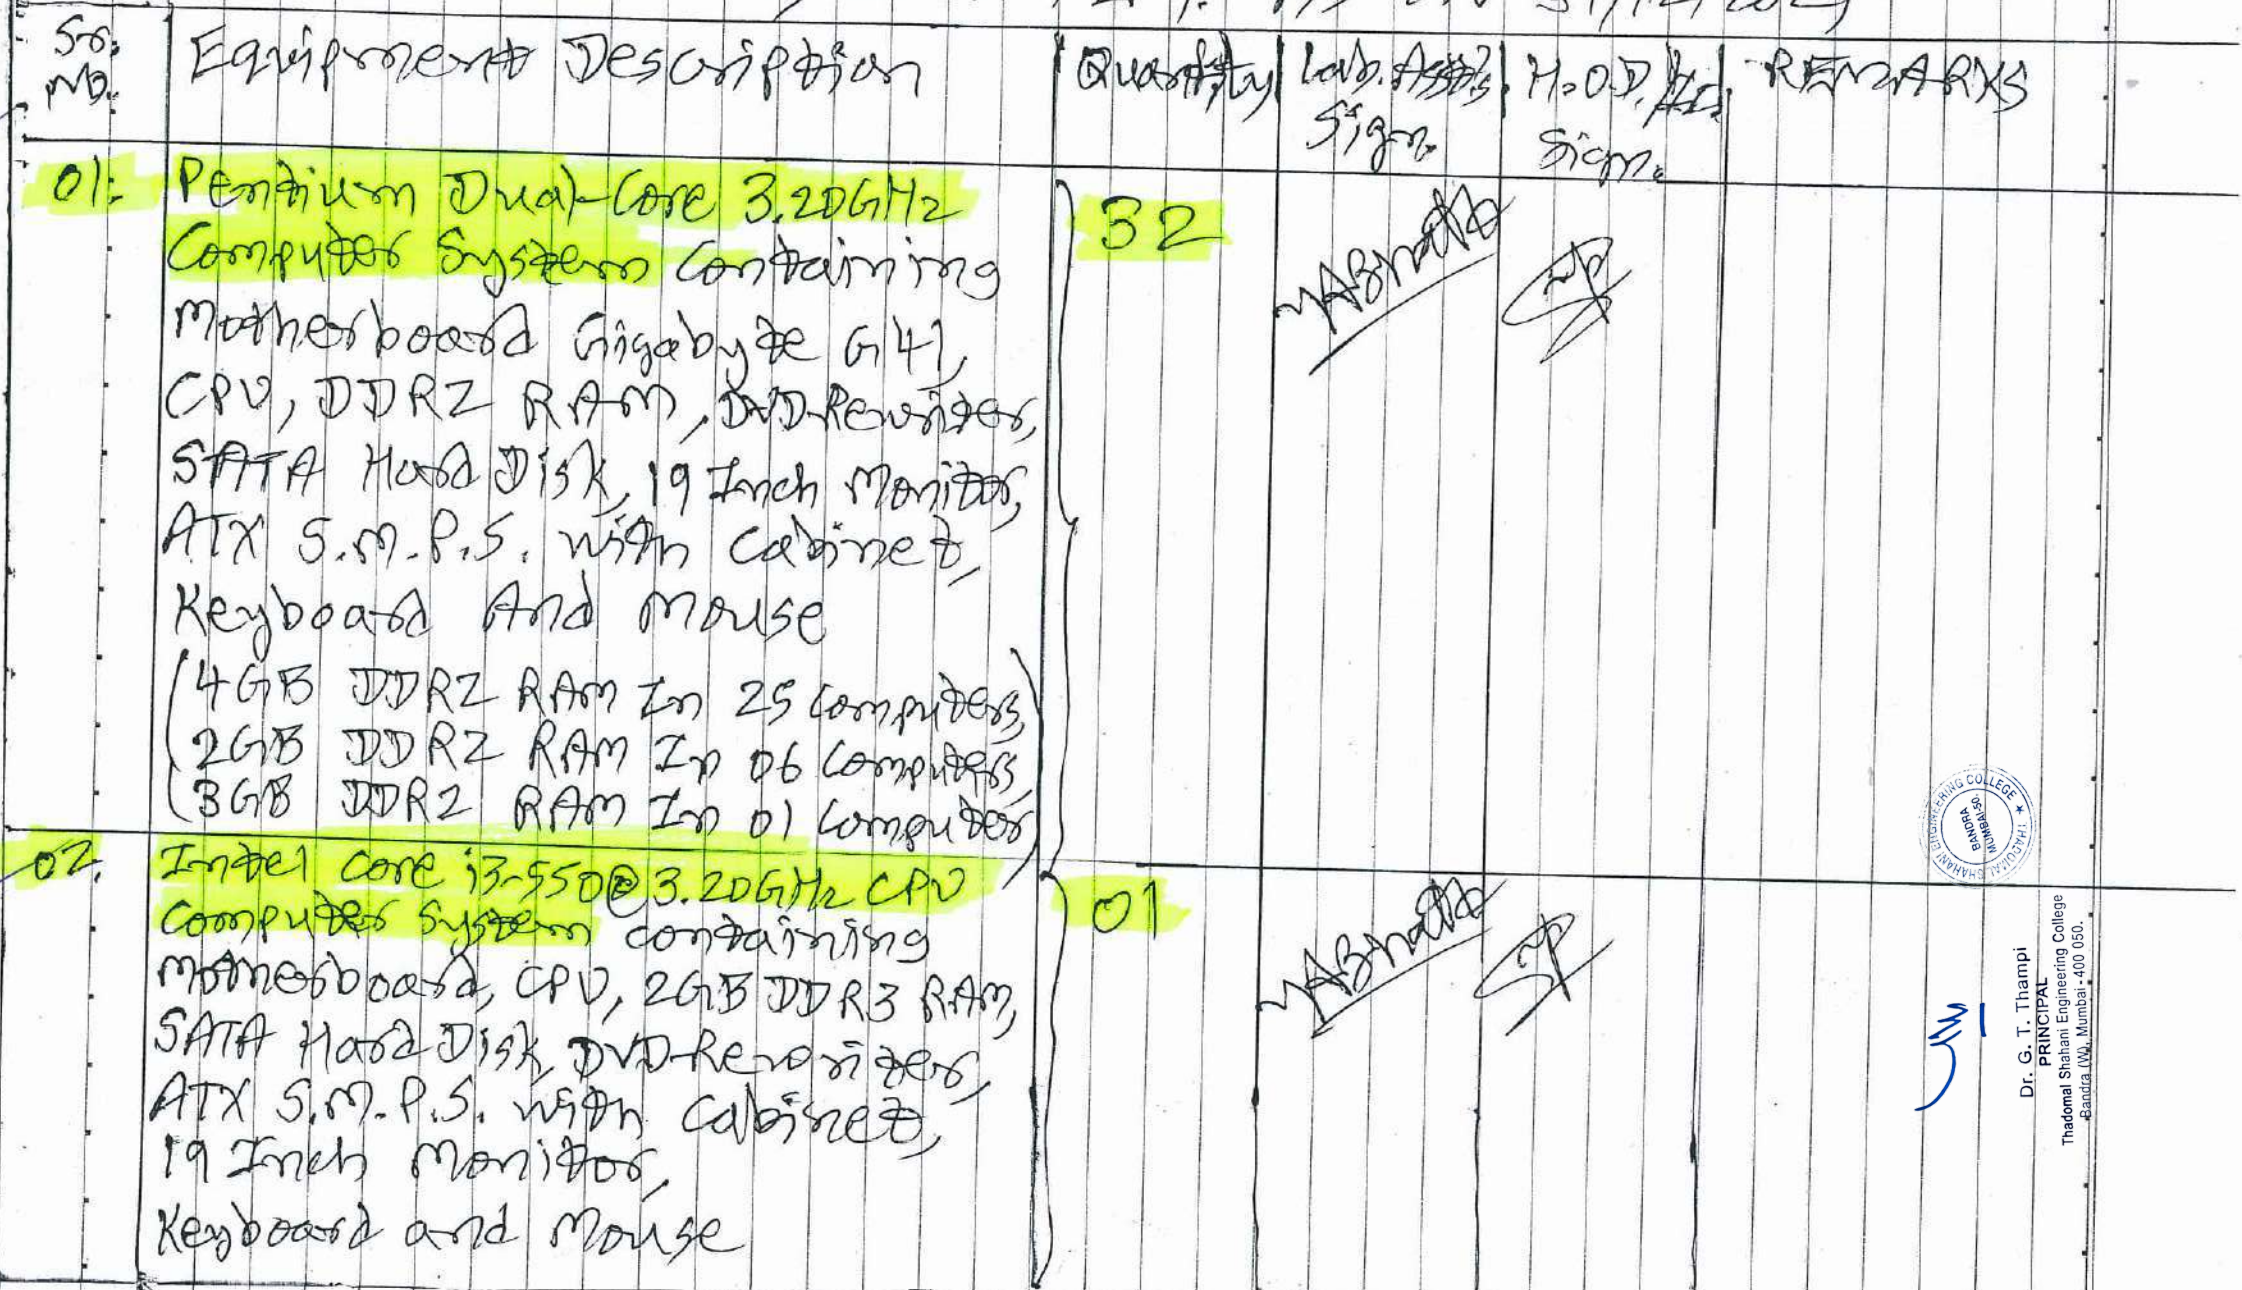 31/12/2021
Sr. No. Equipment Description Quantity Lab. Asst's Sign. H.O.D. Sign. REMARKS
01. Pentium Dual-Core 3.20GHz 32
Computer System Containing
Motherboard Gigabyte G41,
CPU, DDR2 RAM, DVD-Rewriter,
SATA Hard Disk, 19 Inch Monitor,
ATX S.M.P.S. with Cabinet,
Keyboard And Mouse
(4GB DDR2 RAM In 25 Computers,
2GB DDR2 RAM In 06 Computers,
3GB DDR2 RAM In 01 Computer)
02. Intel Core i3-550@3.20GHz CPU 01
Computer System containing
Motherboard, CPU, 2GB DDR3 RAM,
SATA Hard Disk, DVD-Rewriter,
ATX S.M.P.S. with Cabinet,
19 Inch Monitor,
Keyboard and Mouse
THADOMAL SHAHANI ENGINEERING COLLEGE ★
BANDRA
MUMBAI-50.
Dr. G. T. Thampi
PRINCIPAL
Thadomal Shahani Engineering College
Bandra (W), Mumbai - 400 050.